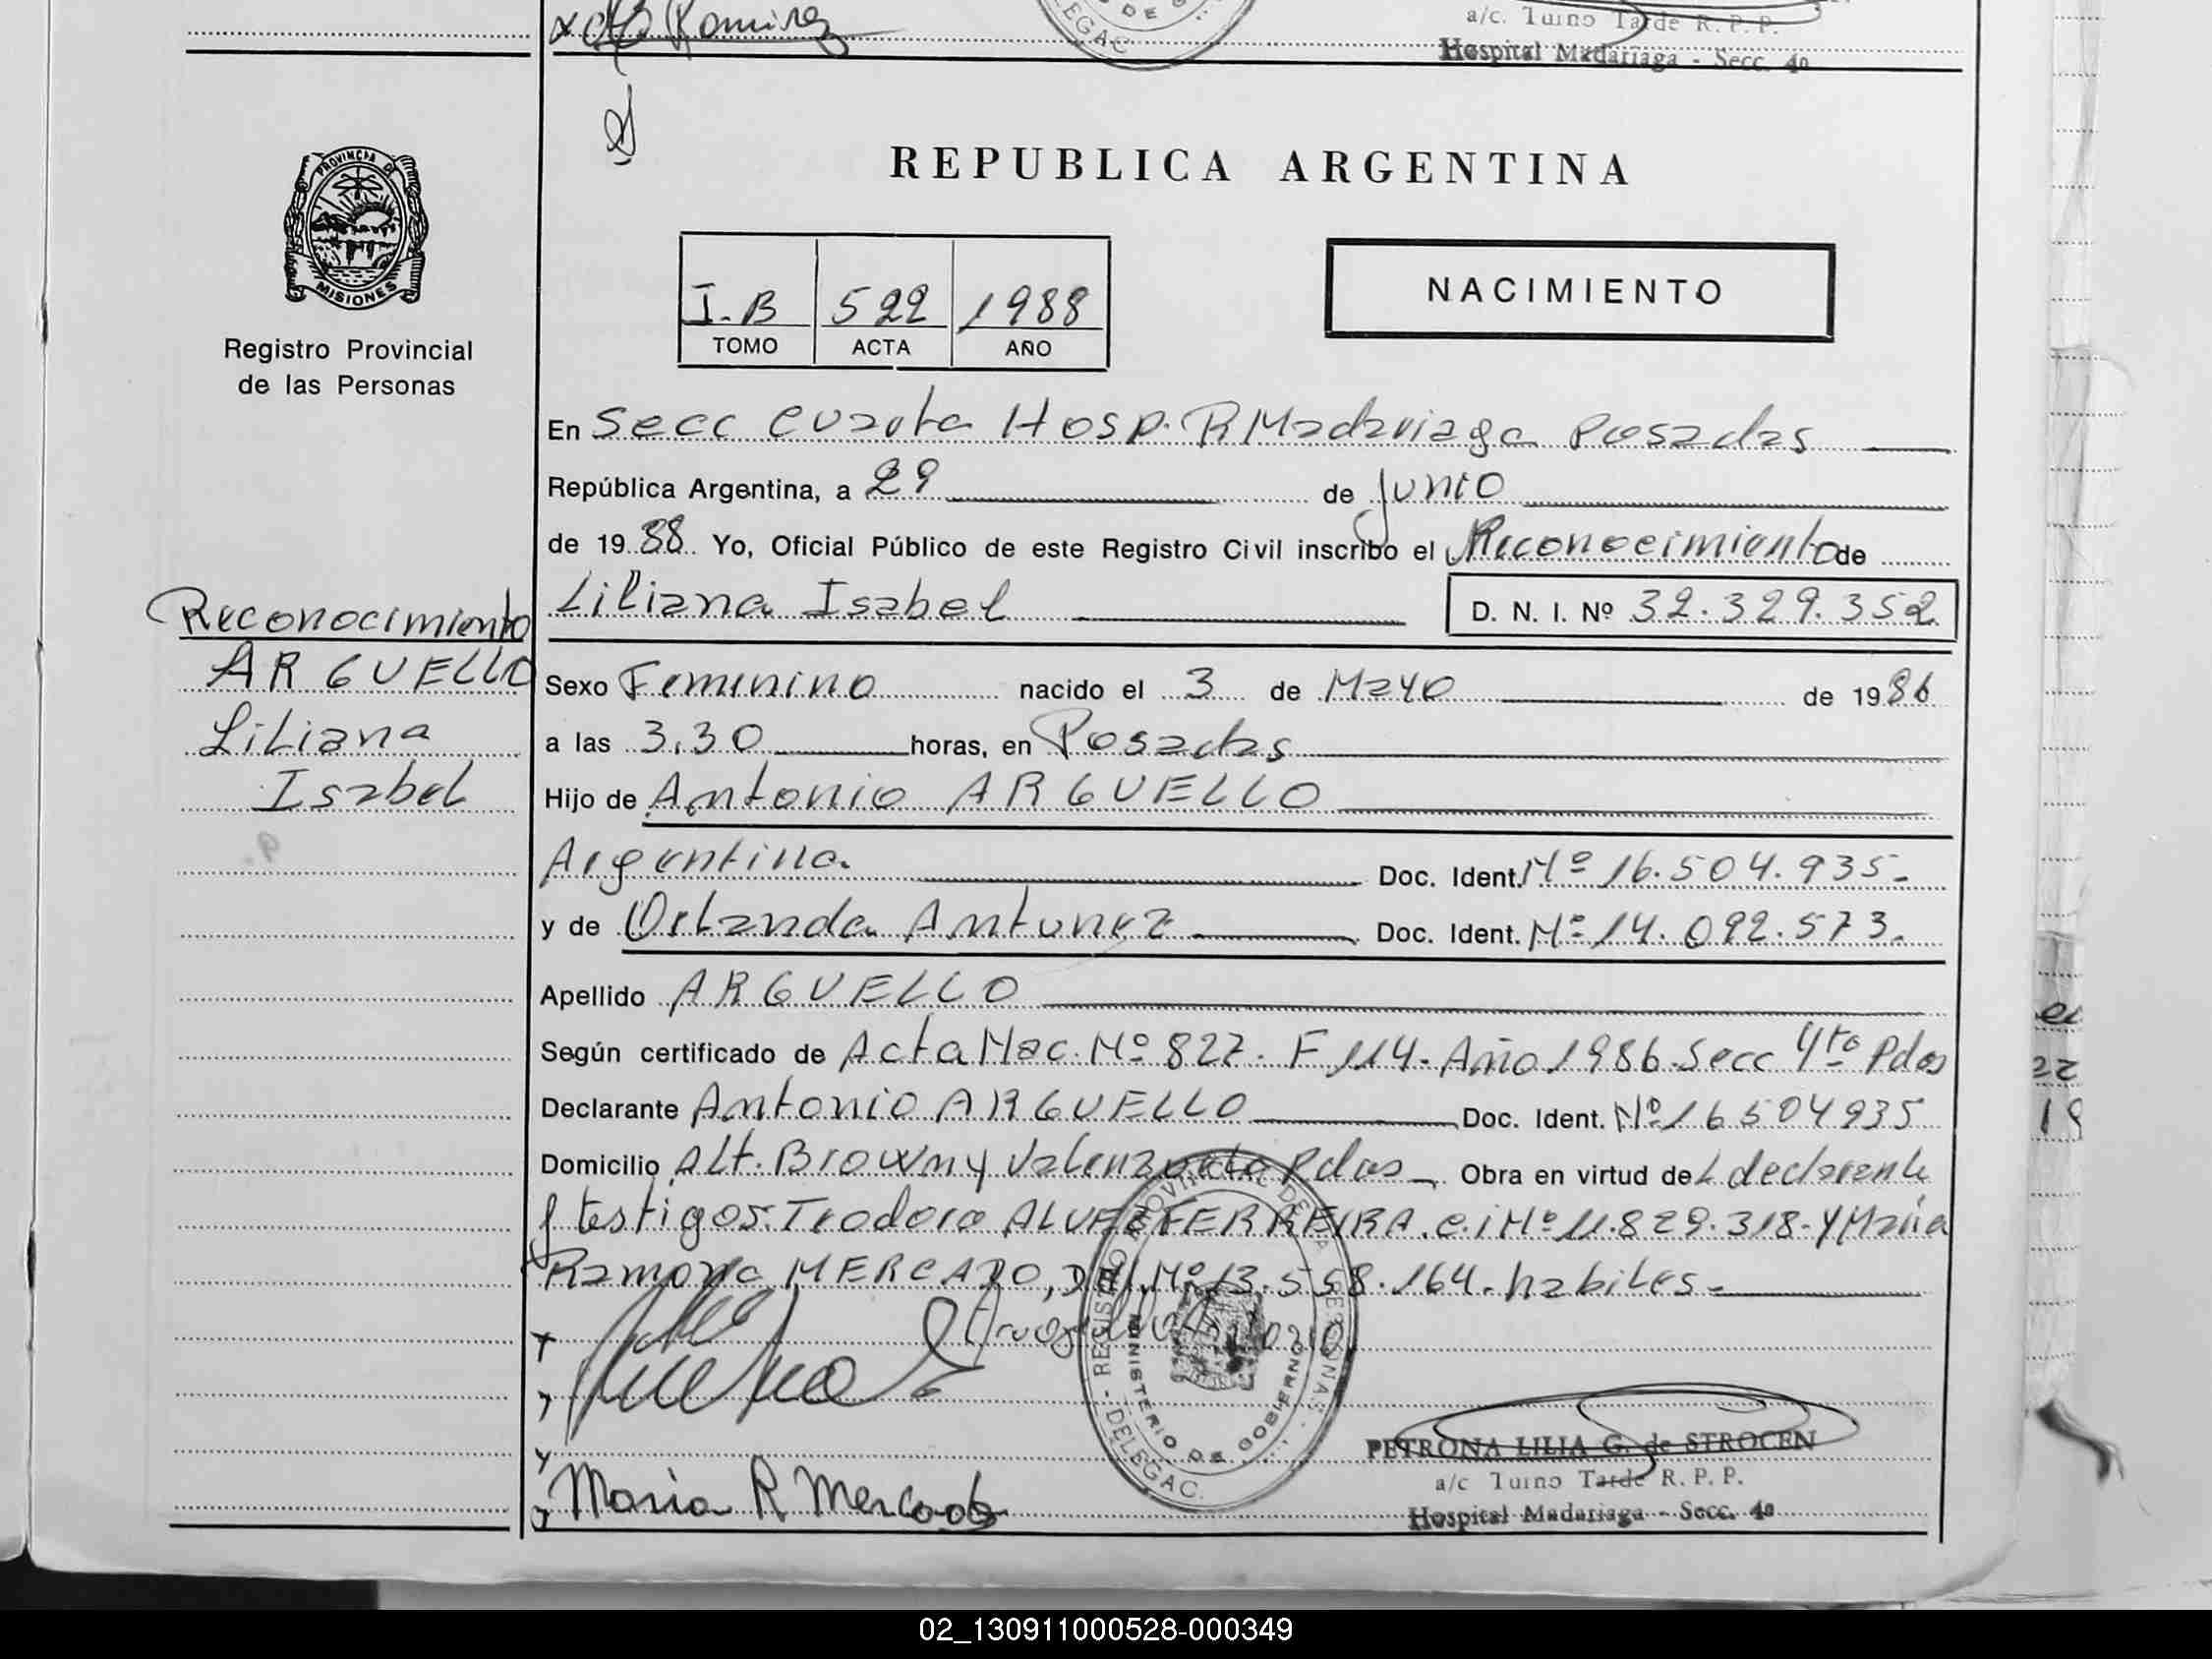 Ramirez
DE
DELEGAC
a/c. Turno Tarde R. P. P.
Hospital Madariaga - Secc. 4a
REPUBLICA ARGENTINA
PROVINCIA DE
MISIONES
Registro Provincial
de las Personas
I.B 522 1988
TOMO ACTA AÑO
NACIMIENTO
En Secc Cuarta Hosp. R Madariaga Posadas
República Argentina, a 29 de Junio
de 1988 Yo, Oficial Público de este Registro Civil inscribo el Reconocimiento de
Liliana Isabel D. N. I. Nº 32.329.352
Reconocimiento
ARGUELLO
Liliana
Isabel
Sexo Femenino nacido el 3 de Mayo de 1986
a las 3,30 horas, en Posadas
Hijo de Antonio ARGUELLO
Argentina. Doc. Ident. Nº 16.504.935-
y de Orlanda Antunez Doc. Ident. Nº 14.092.573.
Apellido ARGUELLO
Según certificado de Acta Nac. Nº 827. F 114. Año 1986. Secc 4ta Pdas
Declarante Antonio ARGUELLO Doc. Ident. Nº 16504935
Domicilio Alt. Brown y Valenzuela Pdas Obra en virtud del declarante
y testigos. Teodoro ALVEZ FERREIRA. C.i Nº 11.829.318- Y María
Ramona MERCADO, DNI. Nº 13.558.164. habiles.-
Arguello Antonio
REGISTRO PROVINCIAL DE LAS PERSONAS
MINISTERIO DE GOBIERNO
DELEGAC.
PETRONA LILIA G. de STROCEN
a/c Turno Tarde R. P. P.
Hospital Madariaga - Secc. 4a
Maria R Mercado
02_130911000528-000349